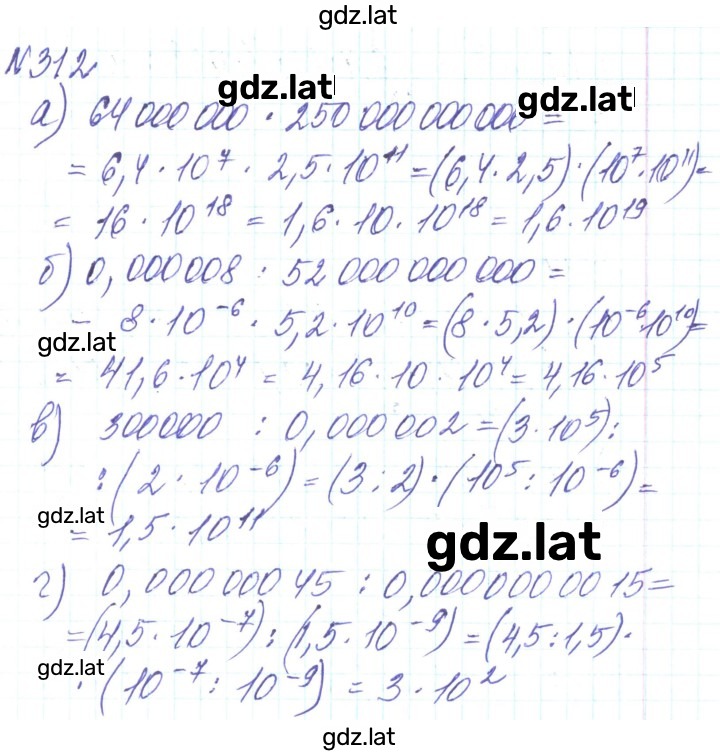 gdz.lat
№312
gdz.lat
gdz.lat
а) 64 000 000 · 250 000 000 000 =
= 6,4 · 10⁷ · 2,5 · 10¹¹ = (6,4 · 2,5) · (10⁷ · 10¹¹) =
= 16 · 10¹⁸ = 1,6 · 10 · 10¹⁸ = 1,6 · 10¹⁹
б) 0,000008 : 52 000 000 000 =
= 8 · 10⁻⁶ · 5,2 · 10¹⁰ = (8 · 5,2) · (10⁻⁶ 10¹⁰) =
gdz.lat
= 41,6 · 10⁴ = 4,16 · 10 · 10⁴ = 4,16 · 10⁵
в) 300000 : 0,000 002 = (3 · 10⁵) :
: (2 · 10⁻⁶) = (3 : 2) · (10⁵ : 10⁻⁶) =
gdz.lat
= 1,5 · 10¹¹
gdz.lat
г) 0,000 000 45 : 0,000000 00 15 =
= (4,5 · 10⁻⁷) : (1,5 · 10⁻⁹) = (4,5 : 1,5) ·
gdz.lat
· (10⁻⁷ : 10⁻⁹) = 3 · 10²
gdz.lat